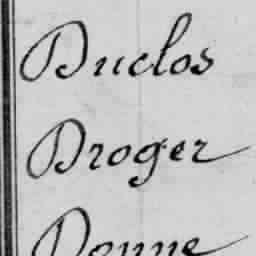 Duclos
Droger
Donne